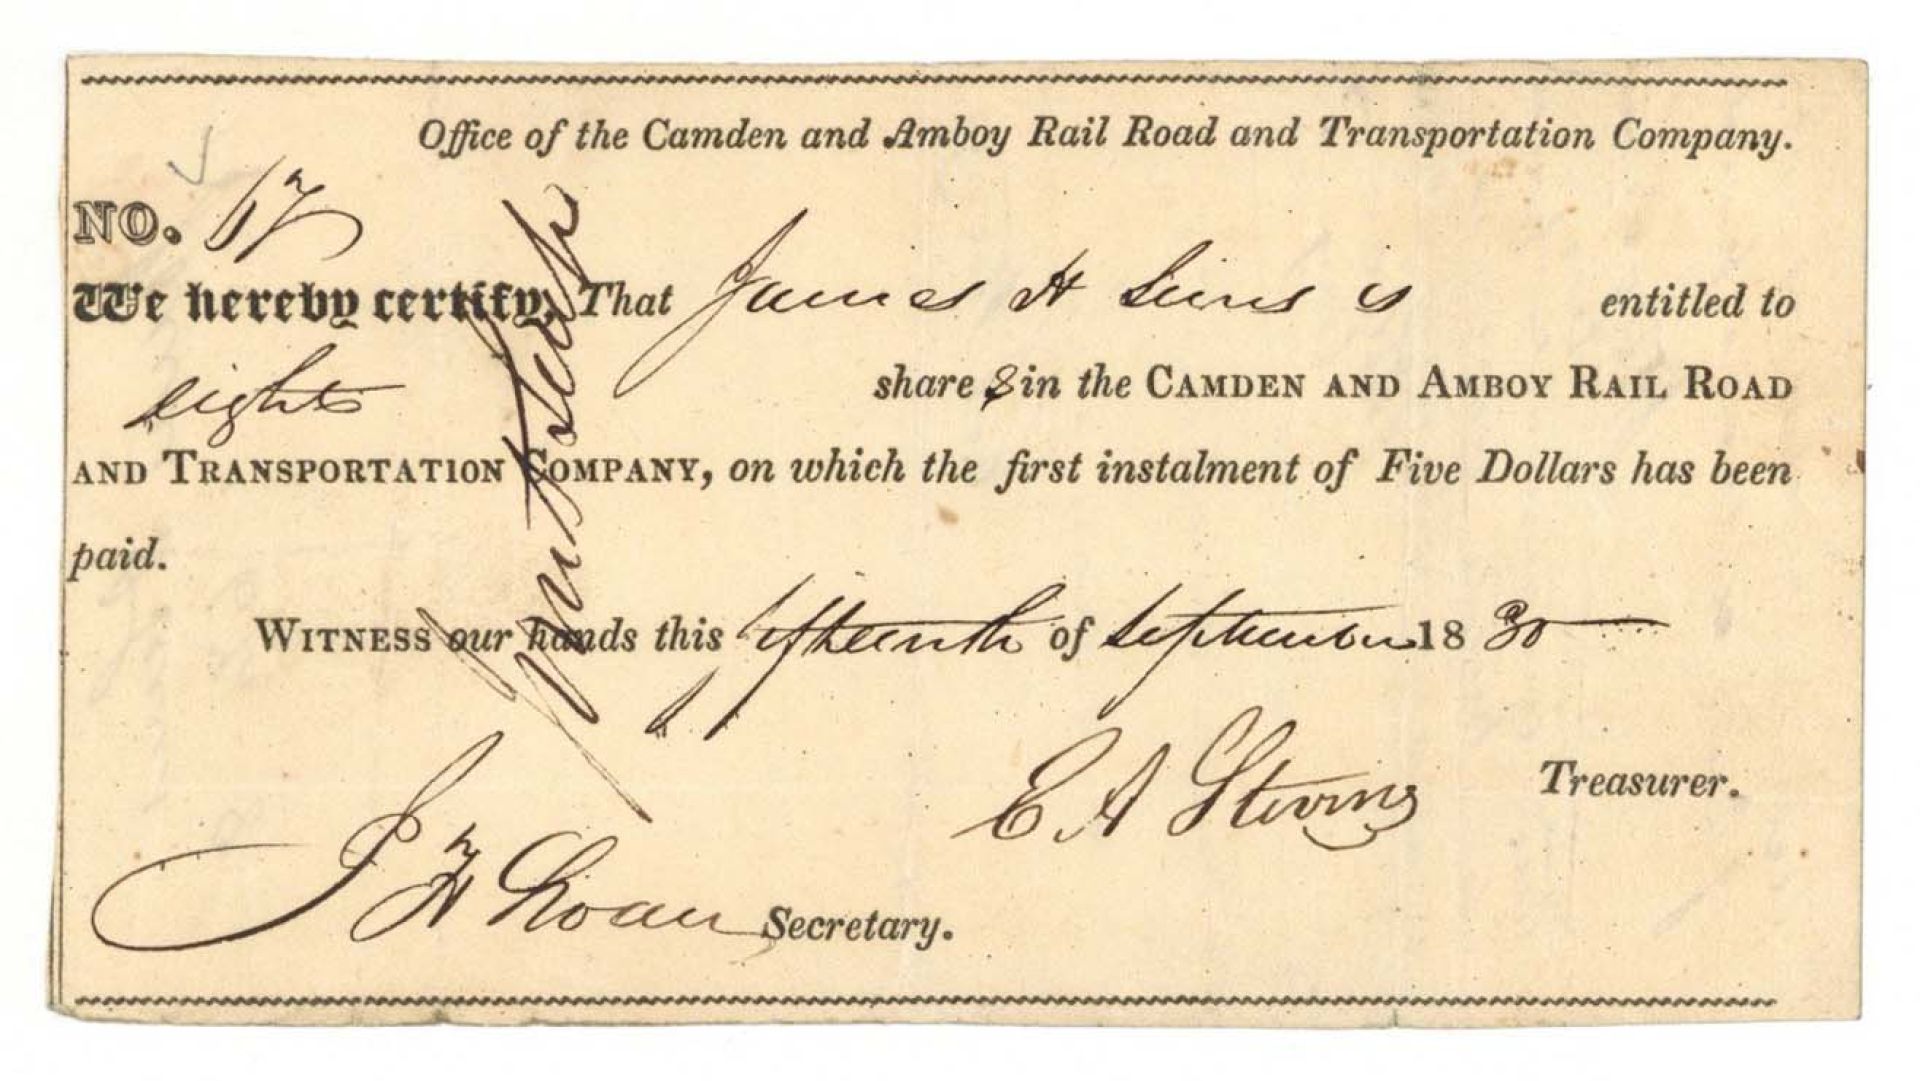 Office of the Camden and Amboy Rail Road and Transportation Company.
NO. 67
We hereby certify, That James H Sims is entitled to
eight share s in the CAMDEN AND AMBOY RAIL ROAD
AND TRANSPORTATION COMPANY, on which the first instalment of Five Dollars has been
paid.
WITNESS our hands this fifteenth of September 18 30
E A Stevens Treasurer.
J H Sloan Secretary.